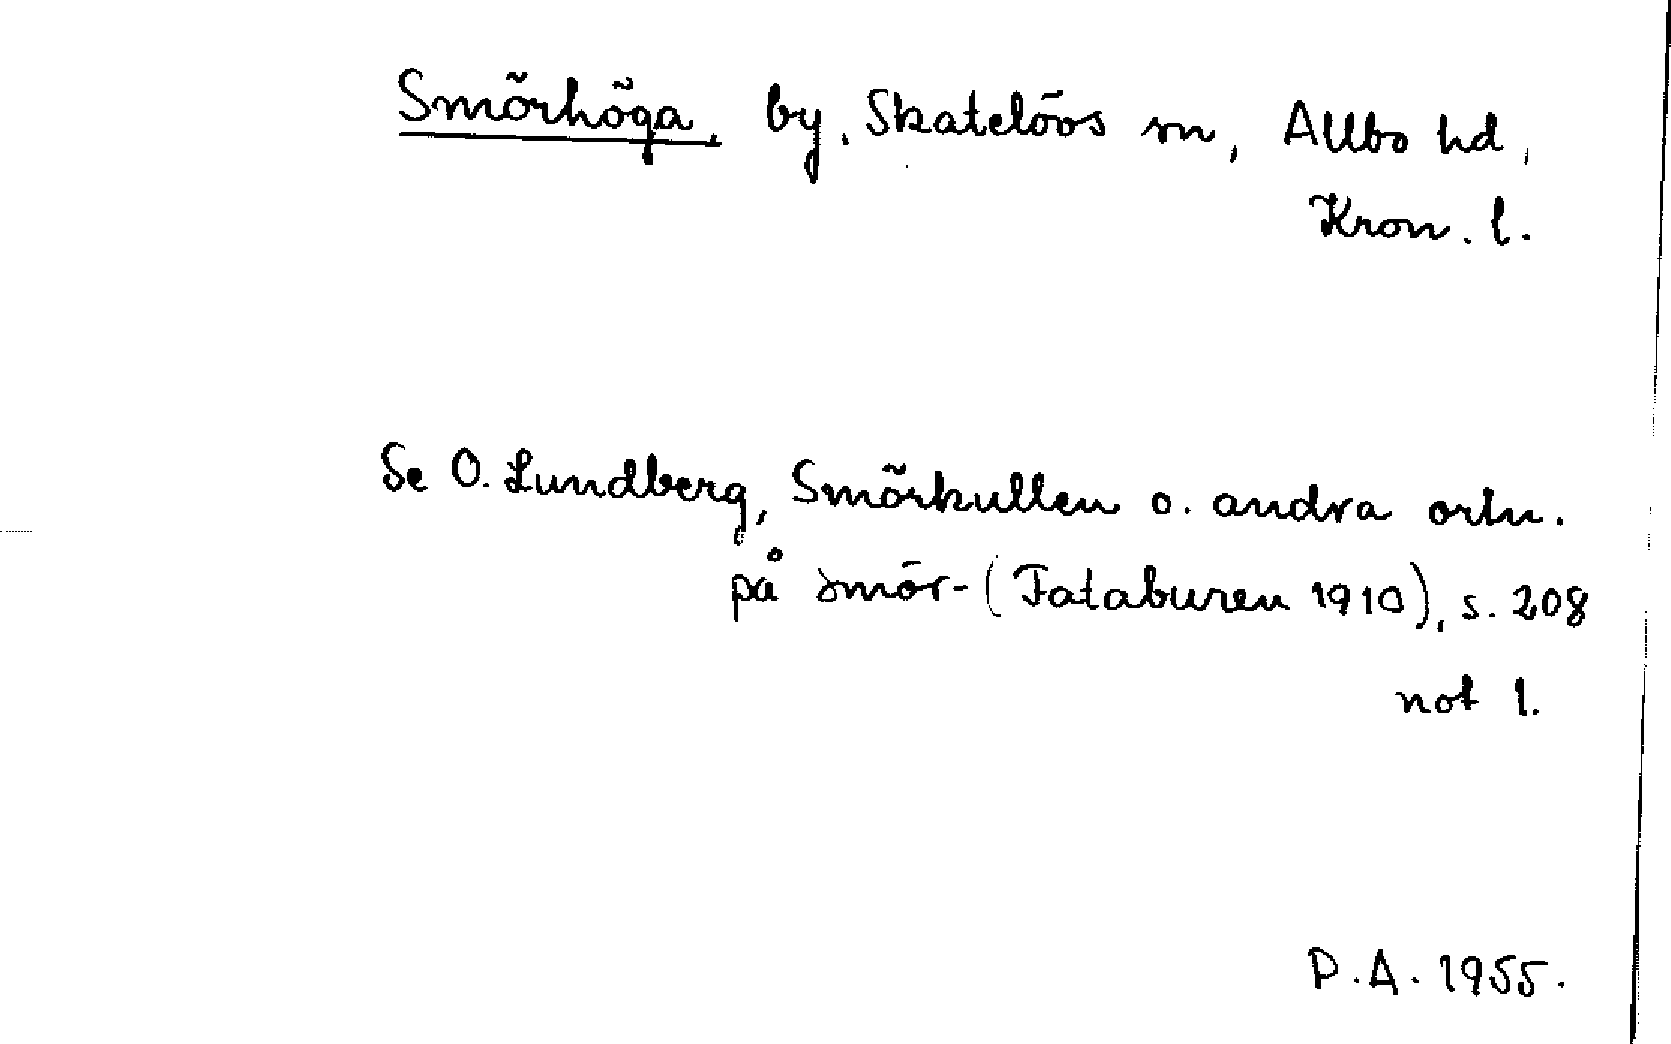 Smörhöga, by, Skatelövs sn, Allbo hd,
Kron. l.
Se O. Lundberg, Smörkullen o. andra ortn.
på smör- (Fataburen 1910), s. 208
not 1.
P.A. 1955.